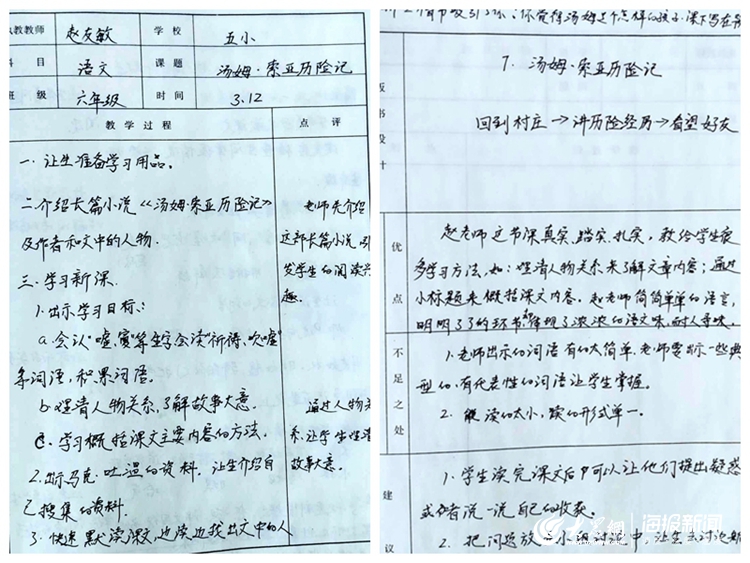 执教教师 赵友敏 学校 五小
科目 语文 课题 汤姆·索亚历险记
班级 六年级 时间 3.12
教学过程 点评
一、让生准备学习用品。
二介绍长篇小说《汤姆·索亚历险记》
及作者和文中的人物.
三.学习新课.
1.出示学习目标:
a.会认"嘘,
会读"祈祷、吹嘘"
等词语,积累词语。
b.理清人物关系,了解故事大意.
c.学习概括课文主要内容的方法.
2.出示马克·吐温的资料,让生介绍自
己搜集的资料.
3.快速默读课文,边读边找出文中的人
老师先介绍
这部长篇小说,引
发学生的阅读兴
趣.
通过人物关
系,让学生理清
故事大意.
你觉得汤姆是个怎样的孩子.
板书设计
7.汤姆·索亚历险记
回到村庄→讲历险经历→看望好友
优点
赵老师这节课真实、踏实、扎实,教给学生很
多学习方法,如:理清人物关系来了解文章内容;通过
小标题来概括课文内容.赵老师简简单单的语言,
明明了了的环节,体现了浓浓的语文味,耐人寻味.
不足之处
1.老师出示的词语有的太简单.老师要出示一些典
型的,有代表性的词语让学生掌握。
2.解读的太小,读的形式单一.
建议
1.学生读完课文后中可以让他们提出疑惑
或者说一说自己的收获.
2.把问题放在小组讨论中,让生去讨论
大众网 海报新闻